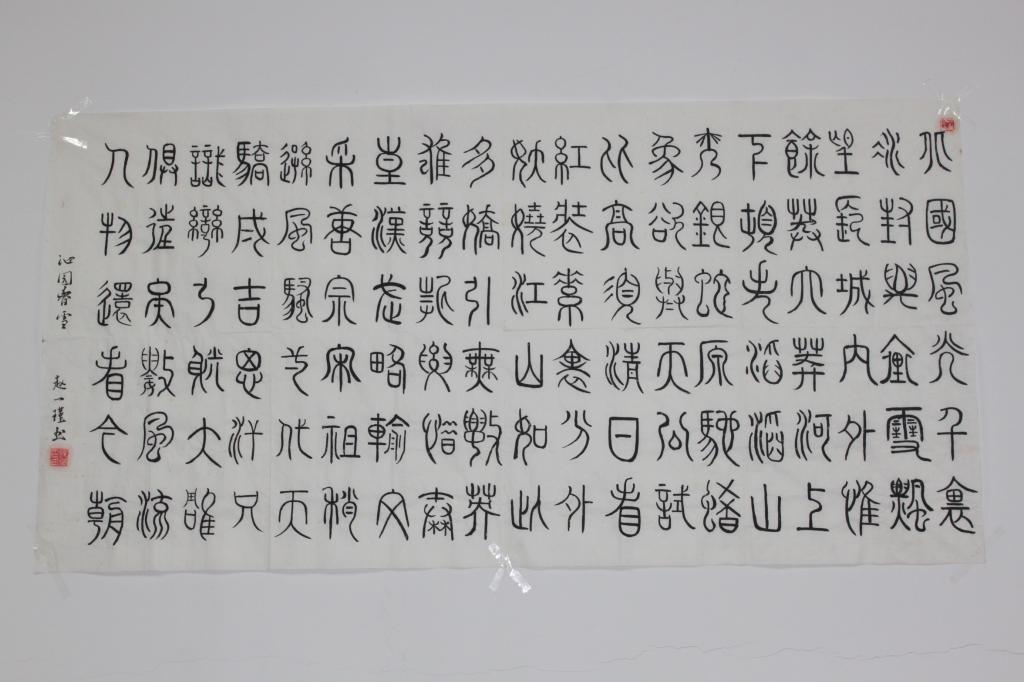 北國風光千里
冰封萬里雪飄
望長城內外惟
餘莽大莽河上
下頓失滔滔山
舞銀蛇原馳蠟
象欲與天公試
比高須清日看
紅裝素裹分外
妖嬈江山如此
多嬌引無數英
雄競折腰惜秦
皇漢武略輸文
采唐宗宋祖稍
遜風騷一代天
驕成吉思汗只
識彎弓射大雕
俱往矣數風流
人物還看今朝
沁園春雪 趙一瑾书